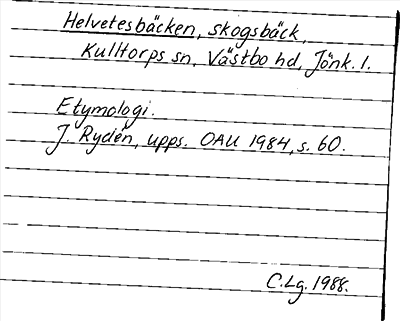 Helvetesbäcken, skogsbäck,
Kulltorps sn, Västbo hd, Jönk. l.
Etymologi.
J. Rydén, upps. OAU 1984, s. 60.
C.Lg. 1988.